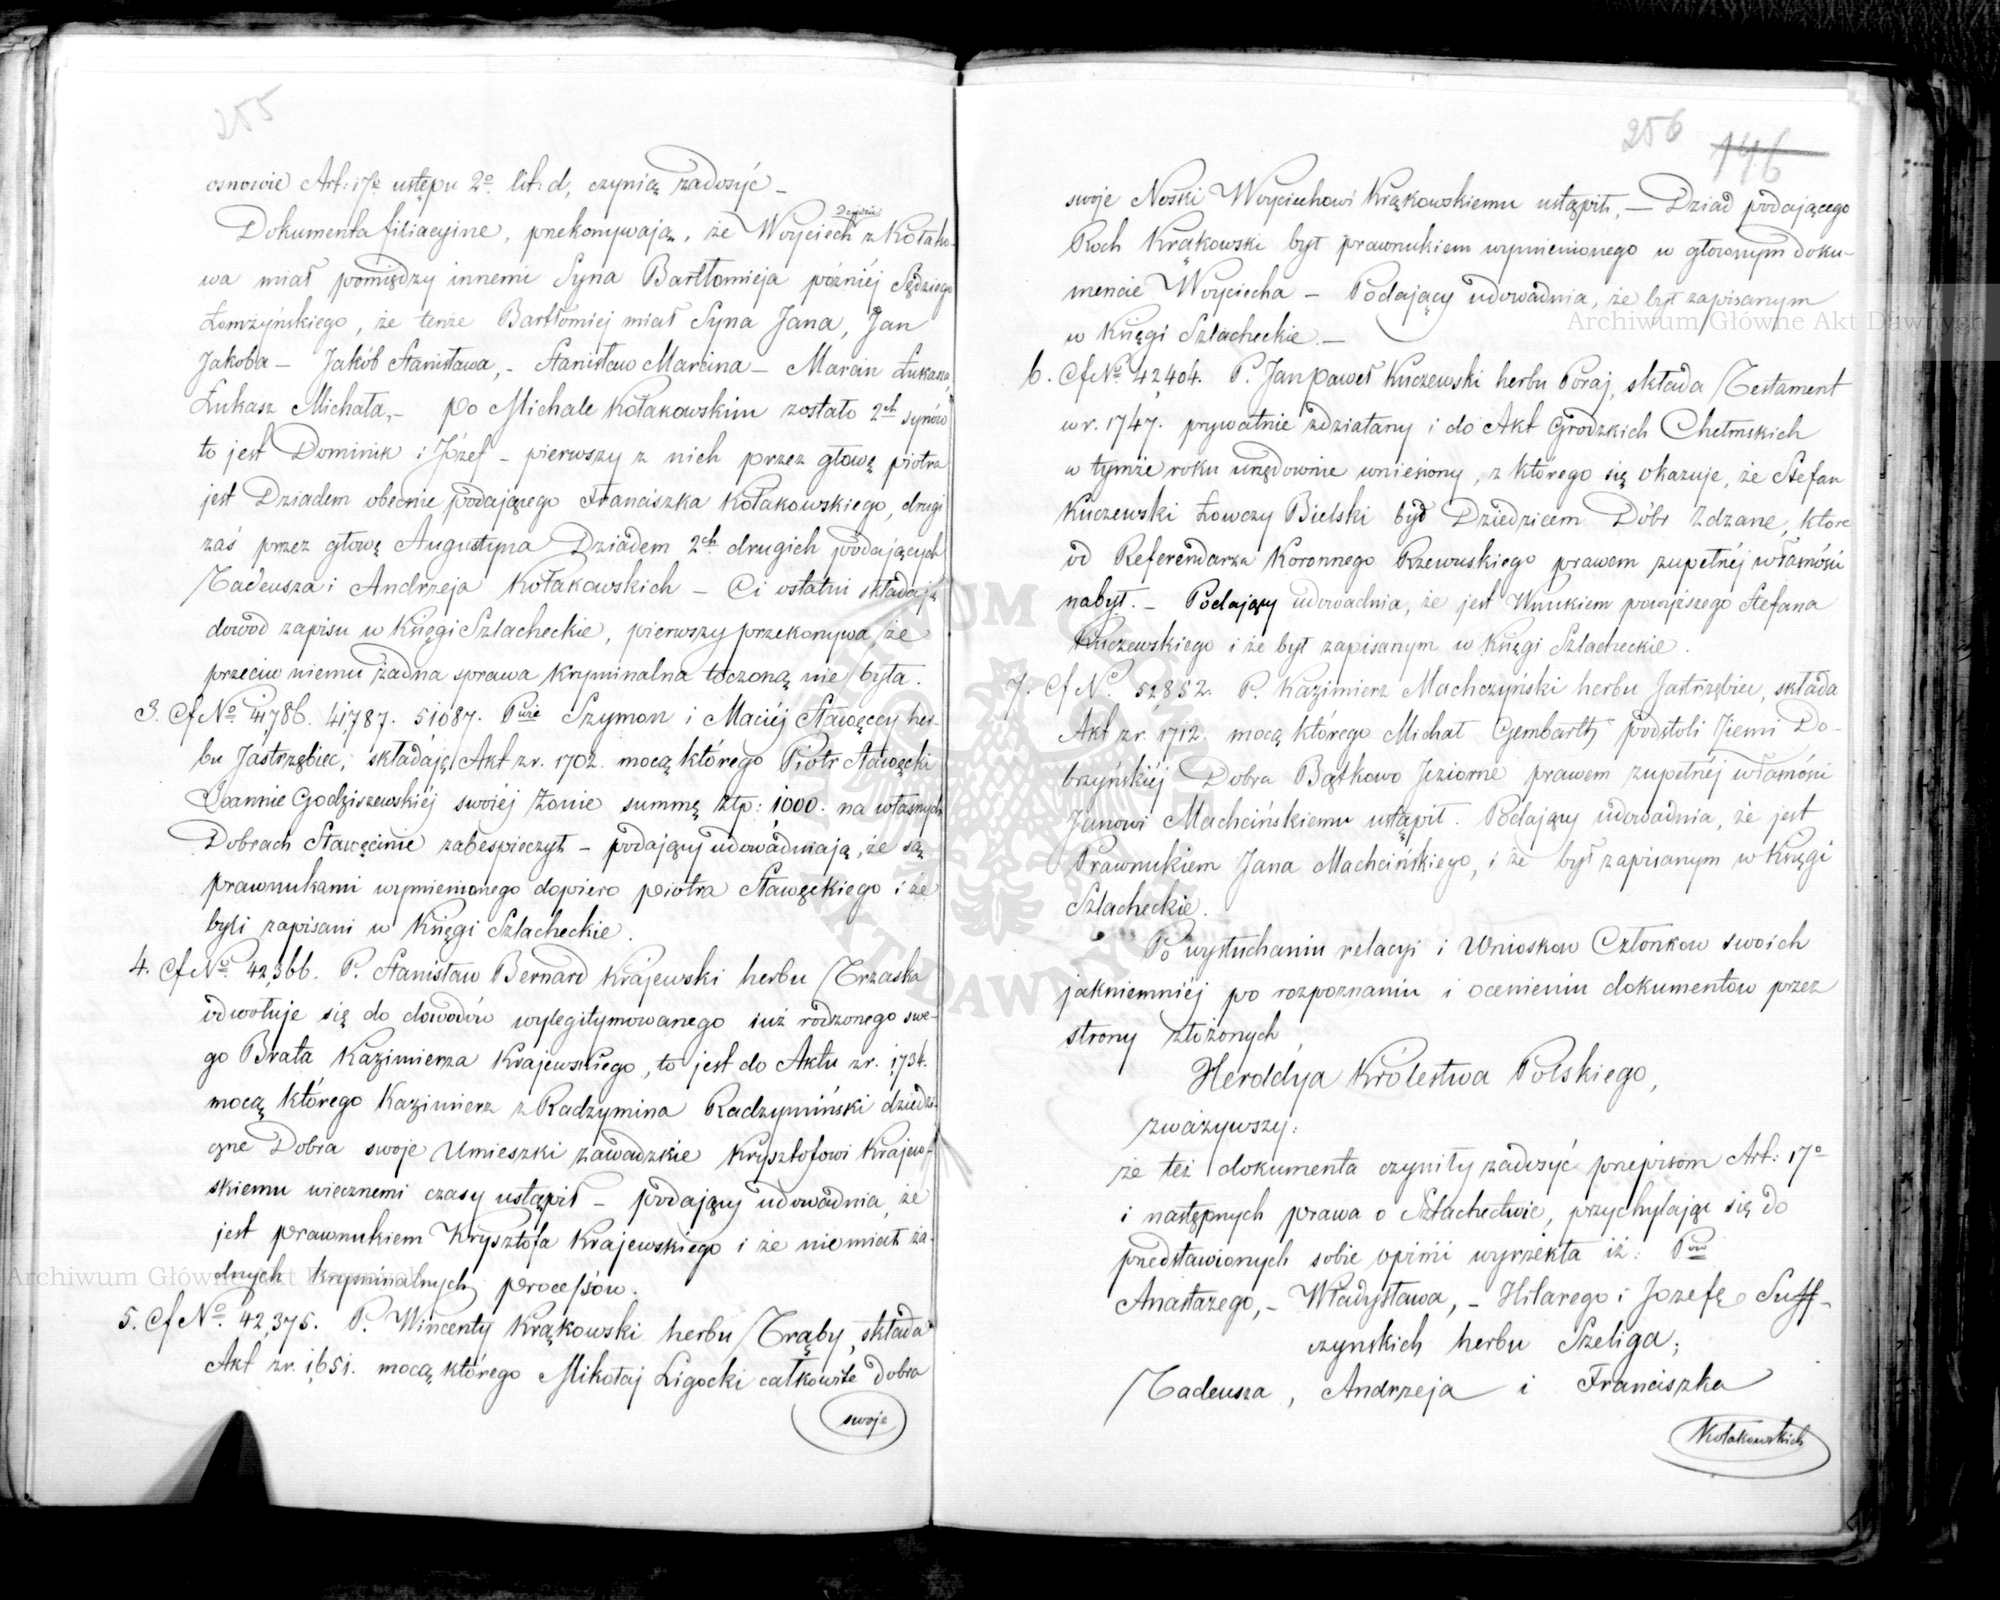 255
osnowie Art: 17º ustępu 2º lit: d, czynią zadosyć –
Dokumenta filiacyjne, przekonywają, że Woyciech z Kołako-
wa miał pomiędzy innemi Syna Bartłomieja później Sędziego
Łomżyńskiego, że tenże Bartłomiej miał Syna Jana, Jan
Jakóba – Jakób Stanisława, – Stanisław Marcina – Marcin Łukasza,
Łukasz Michała, – po Michale Kołakowskim zostało 2ch synów
to jest Dominik i Józef – pierwszy z nich przez głowę piotra
jest Dziadem obecnie podającego Franciszka Kołakowskiego, drugi
zaś przez głowę Augustyna Dziadem 2ch drugich podających
Tadeusza i Andrzeja Kołakowskich – Ci ostatni składają
dowód zapisu w Księgi Szlacheckie, pierwszy przekonywa, że
przeciw niemu żadna sprawa kryminalna toczoną nie była.
3. Cf Nº 41,786. 41,787. 51087. Pwie Szymon i Maciéj Stawęccy her-
bu Jastrzębiec, składają Akt z r. 1702. mocą którego Piotr Stawęcki
Joannie Godziszewskiéj swoiéj żonie summę złp: 1000. na własnych
Dobrach Stawęcinie zabespieczył – podający udowadniają, że są
prawnukami wymienionego dopiero piotra Stawęckiego i że
byli zapisani w Księgi Szlacheckie.
4. Cf Nº 42,366. P. Stanisław Bernard Krajewski herbu Trzaska
odwołuje się do dowodów wylegitymowanego już rodzonego swe-
go Brata Kazimierza Krajewskiego, to jest do Aktu z r. 1734.
mocą którego Kazimierz z Radzymina Radzymiński dziedzi-
czne Dobra swoje Umieszki zawadzkie Krysztofowi Krajew-
skiemu wiecznemi czasy ustąpił – podający udowadnia, że
jest prawnukiem Krysztofa Krajewskiego i że niemiał ża-
dnych kryminalnych processów.
5. Cf Nº 42,375. P. Wincenty Krąkowski herbu Trąby, składa
Akt z r. 1651. mocą którego Mikołaj Ligocki całkowite dobra
swoje
256
146
swoje Noski Woyciechowi Krąkowskiemu ustąpił, – Dziad podającego
Roch Krąkowski był prawnukiem wymienionego w głównym doku-
mencie Woyciecha – Podający udowadnia, że był zapisanym
w Księgi Szlacheckie. –
6. Cf Nº 42,404. P. Jan paweł Kuczewski herbu Poraj, składa Testament
w r. 1747. prywatnie zdziałany i do Akt Grodzkich Chełmskich
w tymże roku urzędownie wniesiony, z którego się okazuje, że Stefan
Kuczewski Łowczy Bielski był Dziedzicem Dóbr Zdzane, które
od Referendarza Koronnego Rzewuskiego prawem zupełnéj własności
nabył. – Podający udowadnia, że jest Wnukiem powyższego Stefana
Kuczewskiego i że był zapisanym w Księgi Szlacheckie.
7. Cf Nº 52,852. P. Kazimierz Machczyński herbu Jastrzębiec, składa
Akt z r. 1712. mocą którego Michał Gembarth podstoli Ziemi Do-
brzyńskiéj Dobra Bątkowo Jeziorne prawem zupełnéj własności
Janowi Machcińskiemu ustąpił. Podający udowadnia, że jest
Prawnukiem Jana Machcińskiego, i że był zapisanym w Księgi
Szlacheckie.
Po wysłuchaniu relacyi i Wniosków Członków swoich
jakniemniéj po rozpoznaniu i ocenieniu dokumentów przez
strony złożonych
Heroldya Królestwa Polskiego,
zważywszy:
że też dokumenta czyniły zadosyć przepisom Art: 17º
i następnych prawa o Szlachectwie, przychylając się do
przedstawionych sobie opinii wyrzekła iż:
Anastazego, – Władysława, – Hilarego i Jozefę Suff-
czynskich herbu Szeliga;
Tadeusza, Andrzeja i Franciszka
Kołakowskich
Archiwum Główne Akt Dawnych
ARCHIWUM GŁÓWNE AKT DAWNYCH
Archiwum Główne Akt Dawnych